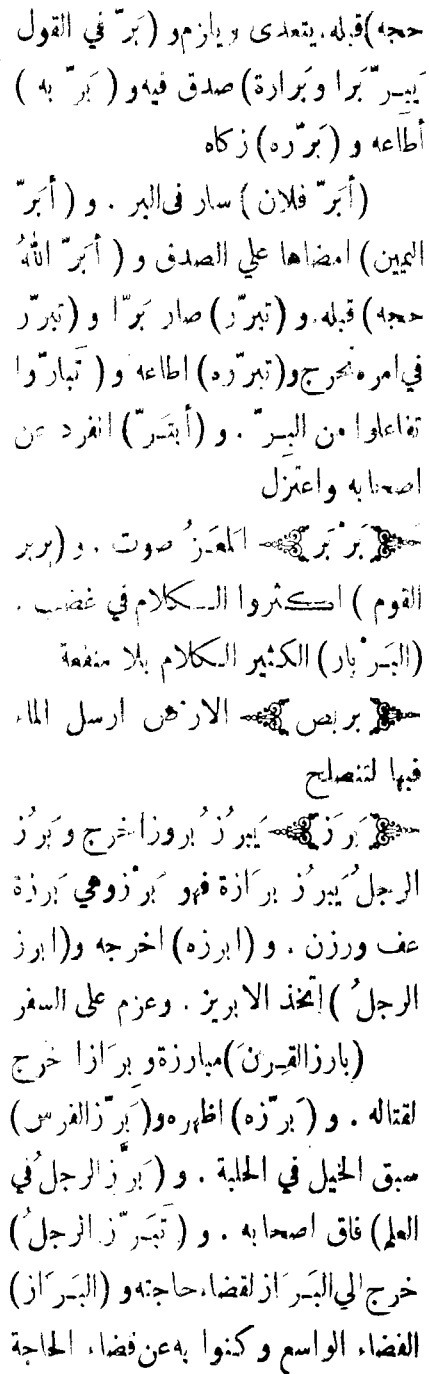 حجه) قبله. يتعدى ويلزم و (بَرّ في القول
يَبِرّ بَرا وبَرارة) صدق فيه و (بَرّ به)
أطاعه و (بَرّره) زكاه
(أبَرّ فلان) سار في البر . و (أبَرّ
اليمين) امضاها علي الصدق و (أبَرّ اللهُ
حجه) قبله. و (تبرّر) صار بَرّا و (تبرّر
في امره تحرج و(تبرّره) اطاعه و (تَبارّوا
تفاعلوا من البِرّ . و (أبتَرّ) انفرد عن
اصحابه واعتزل
﴿بَرْبَر﴾ المَعَزُ صوت . و (بربر
القوم) اكثروا الكلام في غضب .
(البَرْبار) الكثير الكلام بلا منفعة
﴿بربص﴾ الارض ارسل الماء
فيها لتنصلح
﴿بَرَز﴾ يَبرُز بُروزا خرج وبَرُز
الرجلُ يَبرُز برَازة فهو بَرْز وهي بَرزة
عف ورزن . و (ابرزه) اخرجه و(ابرز
الرجلُ) اتخذ الابريز . وعزم على السفر
(بارز القِرنَ) مبارزة وبِرَازا خرج
لقتاله . و (بَرّزه) اظهره و(بَرّز الفرس)
سبق الخيل في الحلبة . و (بَرّز الرجلُ في
العلم) فاق اصحابه . و (تَبَرّز الرجلُ)
خرج الي البَرَاز لقضاء حاجته و (البَرَاز)
الفضاء الواسع وكنوا به عن قضاء الحاجة